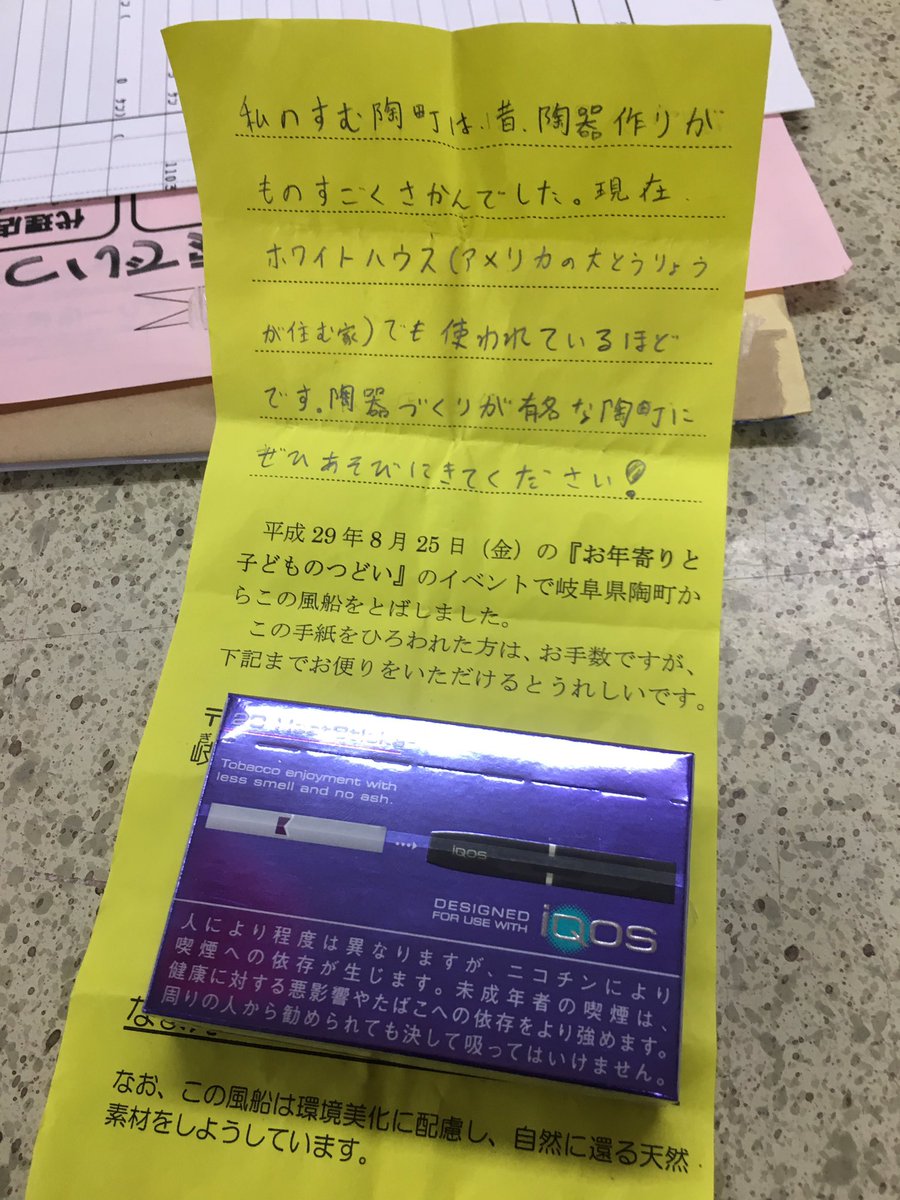 私のすむ陶町は、昔、陶器作りが
ものすごくさかんでした。現在、
ホワイトハウス(アメリカの大とうりょう
が住む家)でも使われているほど
です。陶器づくりが有名な陶町に
ぜひあそびにきてください!
平成29年8月25日(金)の『お年寄りと
子どものつどい』のイベントで岐阜県陶町か
らこの風船をとばしました。
この手紙をひろわれた方は、お手数ですが、
下記までお便りをいただけるとうれしいです。
〒
岐
Tobacco enjoyment with
less smell and no ash.
iQOS
DESIGNED
FOR USE WITH
iQOS
人により程度は異なりますが、ニコチンにより
喫煙への依存が生じます。未成年者の喫煙は、
健康に対する悪影響やたばこへの依存をより強めます。
周りの人から勧められても決して吸ってはいけません。
なお、この風船は環境美化に配慮し、自然に還る天然
素材をしようしています。
代理店
でいつ
1103